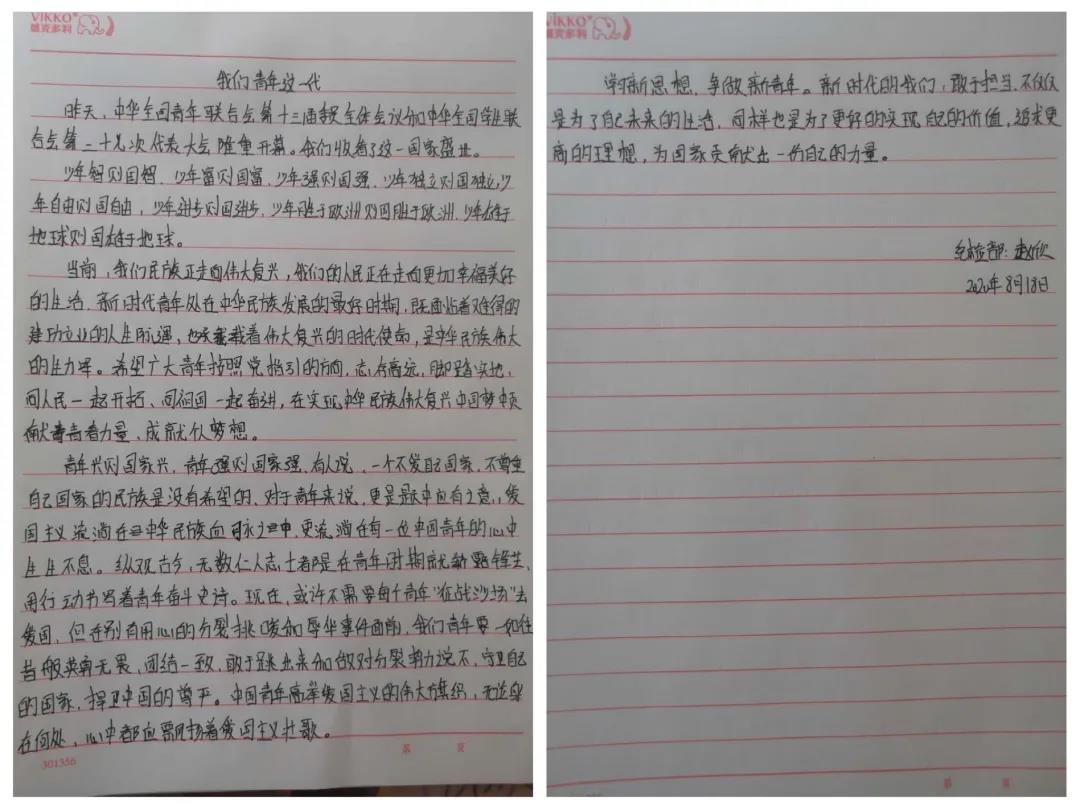 VIKKO
维克多利
我们青年这一代
昨天，中华全国青年联合会第十三届委员会全体会议和中华全国学生联
合会第二十七次代表大会隆重开幕。我们收看了这一国家盛业。
少年智则国智，少年富则国富，少年强则国强，少年独立则国独立，少
年自由则国自由，少年进步则国进步，少年胜于欧洲则国胜于欧洲，少年雄于
地球则国雄于地球。
当前，我们民族正走向伟大复兴，我们的人民正在走向更加幸福美好
的生活，新时代青年处在中华民族发展的最好时期，既面临着难得的
建功立业的人生际遇，也承载着伟大复兴的时代使命，是中华民族伟大
的生力军。希望广大青年按照党指引的方向，志存高远，脚踏实地，
同人民一起开拓、同祖国一起奋进，在实现中华民族伟大复兴中国梦中贡
献青春力量，成就人梦想。
青年兴则国家兴，青年强则国家强，有人说，一个不爱自己国家，不尊重
自己国家的民族是没有希望的，对于青年来说，更是题中应有之意，爱
国主义流淌在中华民族血脉之中，更流淌在每一位中国青年的心中
生生不息。纵观古今，无数仁人志士都是在青年时期就崭露锋芒，
用行动书写着青年奋斗史诗。现在，或许不需要每个青年"征战沙场"去
爱国，但在别有用心的分裂挑唆和辱华事件面前，我们青年要一如往
昔般英勇无畏，团结一致，敢于跳出来和敌对分裂势力说不，守卫自己
的国家，捍卫中国的尊严。中国青年高举爱国主义的伟大旗帜，无论身
在何处，心中都应飘扬着爱国主义壮歌。
301356
第 页
VIKKO
维克多利
学习新思想，争做新青年。新时代的我们，敢于担当，不仅仅
是为了自己未来的生活，同样也是为了更好的实现自己的价值，追求更
高的理想，为国家贡献出一份自己的力量。
纪检部：赵欣
2020年8月18日
第 页